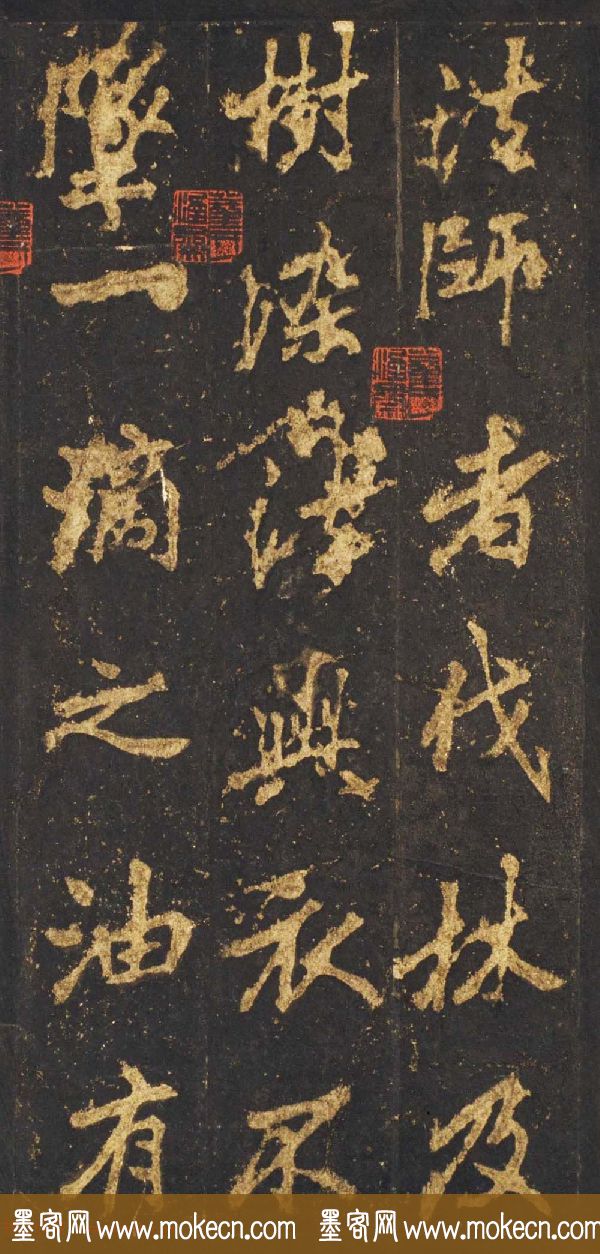 法師者伐林及
樹染與衣不
墜一滴之油有
墨客网 www.mokecn.com 墨客网 www.mokecn.com